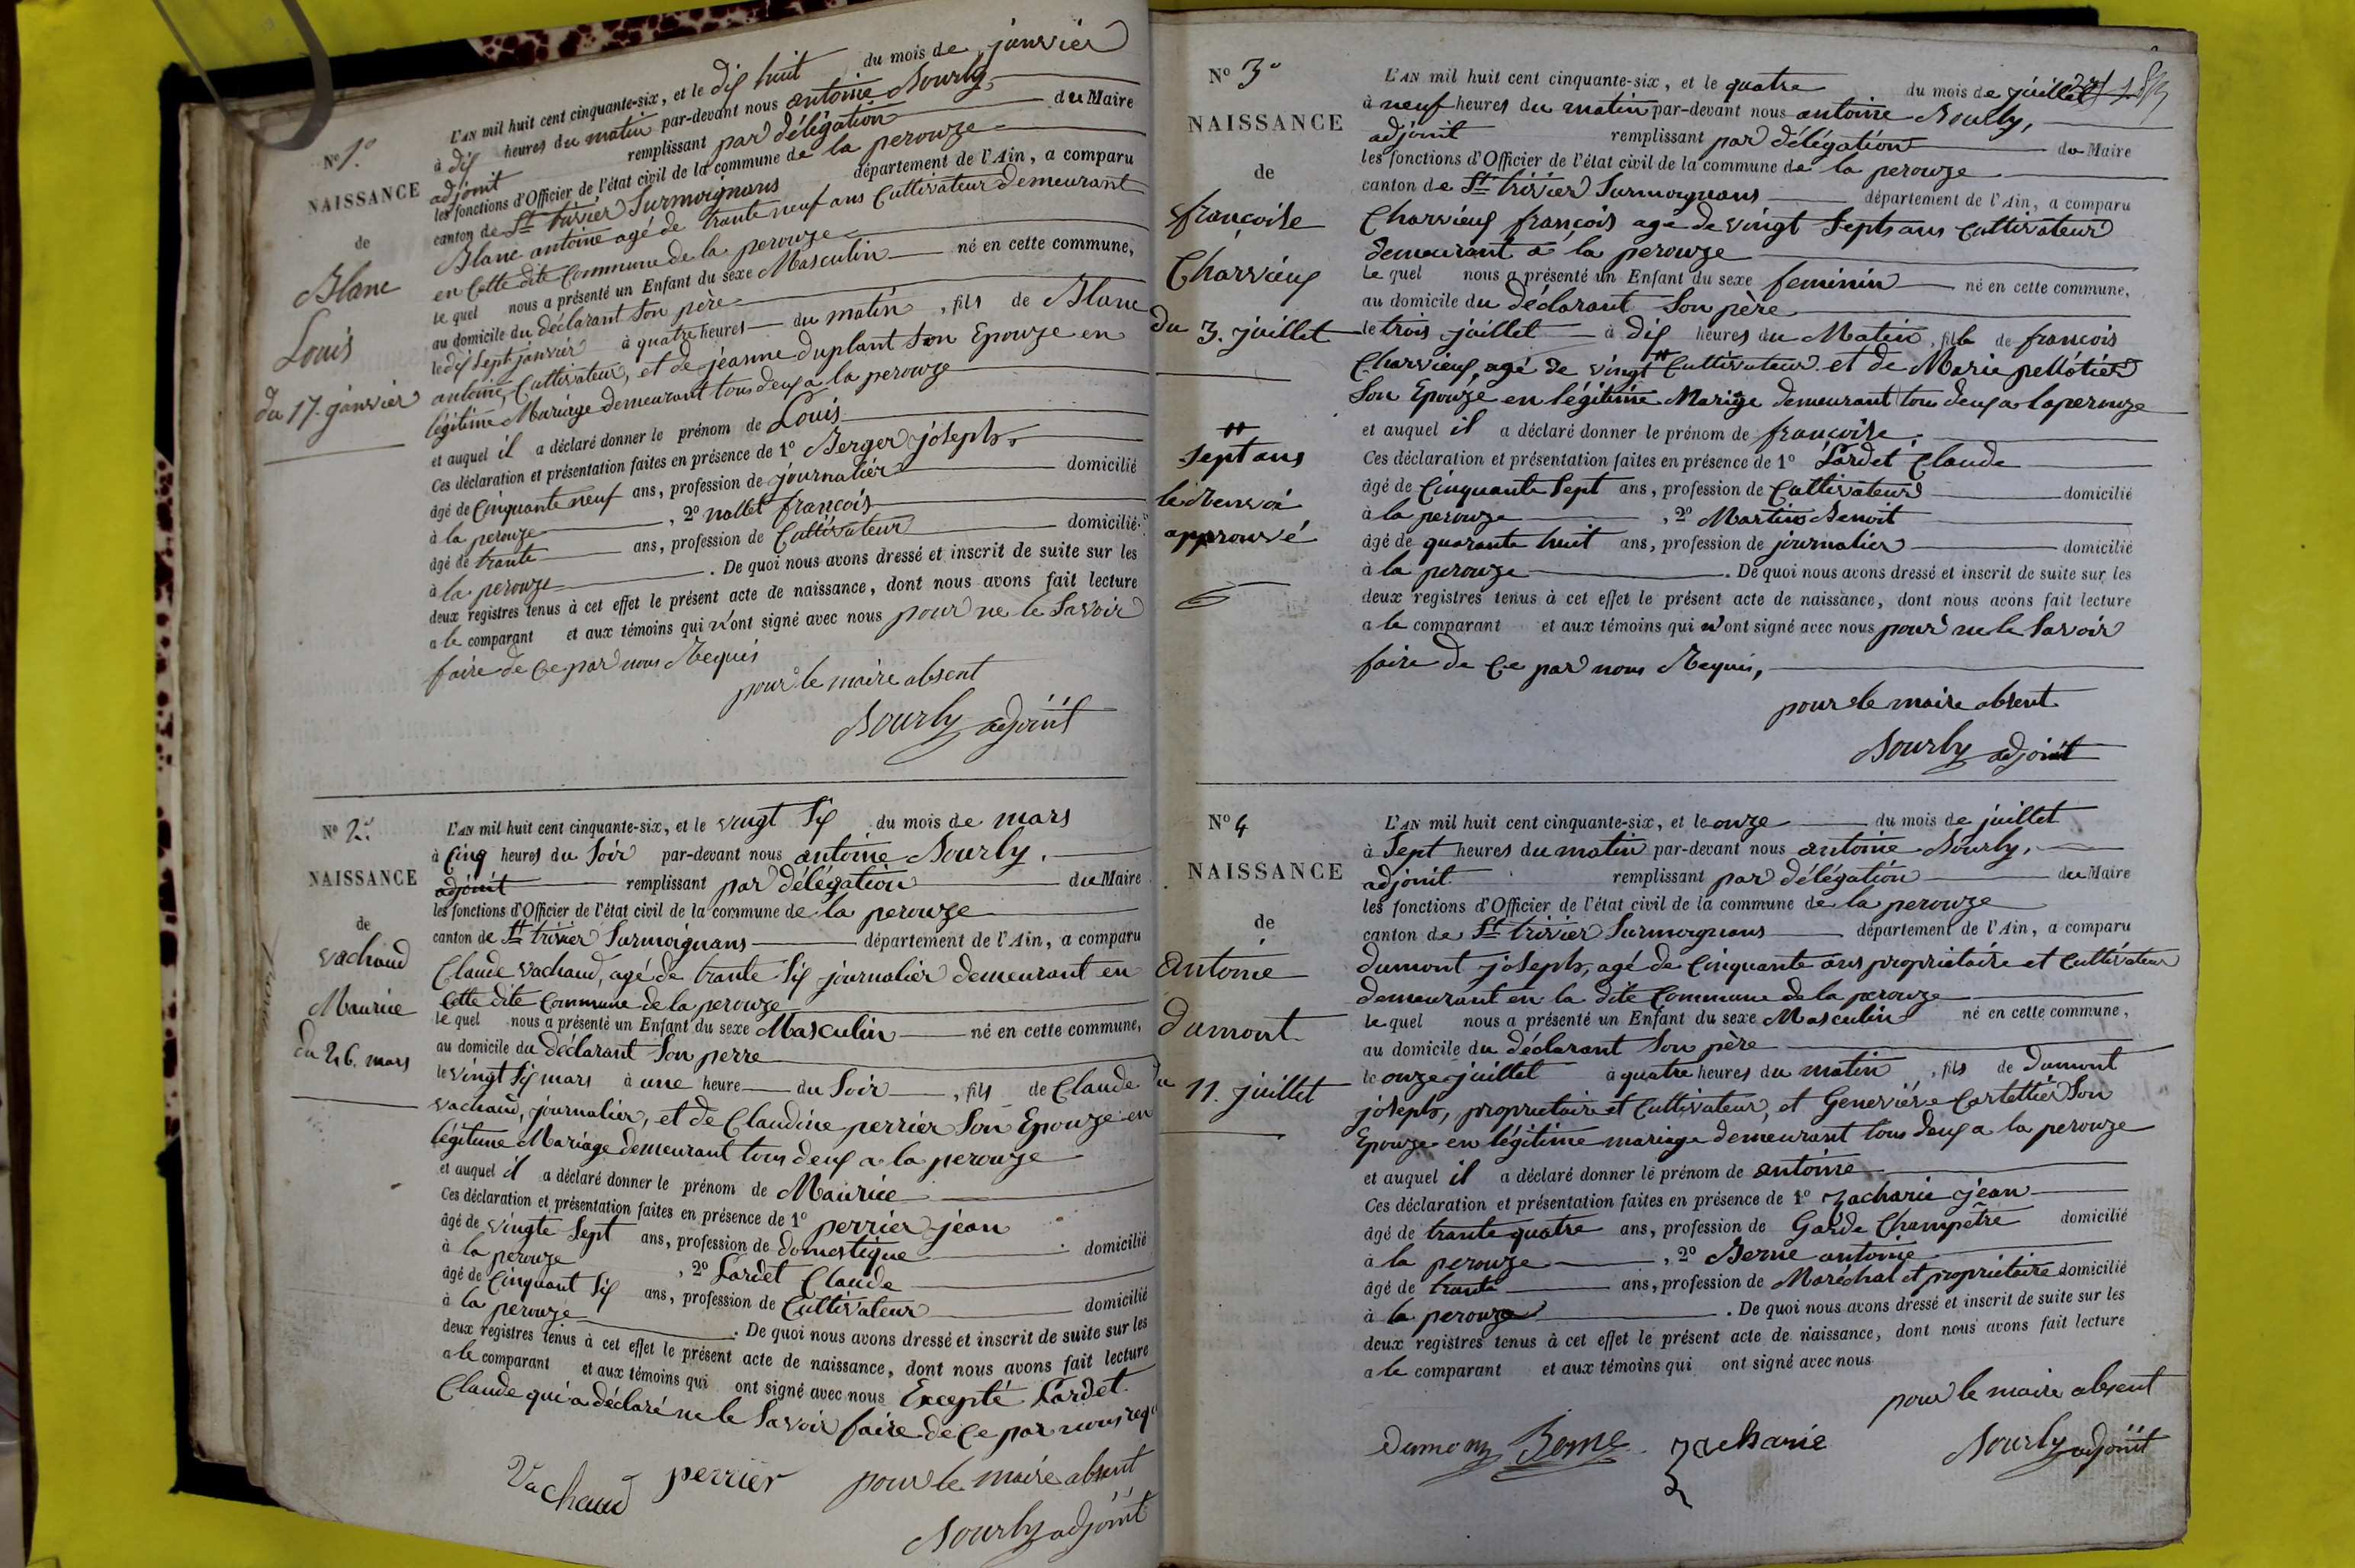 N° 1.°
NAISSANCE
de
Blanc
Louis
du 17. janvier
L'AN mil huit cent cinquante-six, et le dix huit du mois de janvier
à dix heures du matin par-devant nous antoine Sourly,
adjoint remplissant par délégation du Maire
les fonctions d'Officier de l'état civil de la commune de la perouze
canton de St trivier Surmoignans département de l'Ain, a comparu
Blanc antoine agé de trante neuf ans Cultivateur demeurant
en Cette dite Commune de la perouze
le quel nous a présenté un Enfant du sexe Masculin né en cette commune,
au domicile du déclarant Son père
le dix Sept janvier à quatre heures du matin, fils de Blanc
antoine, Cultivateur, et de jéanne duplant Son Epouze en
légitime Mariage demeurant tous deux a la perouze
et auquel il a déclaré donner le prénom de Louis
Ces déclaration et présentation faites en présence de 1° Berger joseph,
âgé de Cinquante neuf ans, profession de journalier domicilié
à la perouze, 2° nallet françois
âgé de trante ans, profession de Cultivateur domicilié
à la perouze. De quoi nous avons dressé et inscrit de suite sur les
deux registres tenus à cet effet le présent acte de naissance, dont nous avons fait lecture
a le comparant et aux témoins qui n'ont signé avec nous pour ne le Savoir
faire de Ce par nous Requis
pour le maire absent
Sourly adjoint
N° 2.°
NAISSANCE
de
vachaud
Maurice
du 26. mars
L'AN mil huit cent cinquante-six, et le vingt Six du mois de mars
à Cinq heures du Soir par-devant nous antoine Sourly,
adjoint remplissant par délégation du Maire
les fonctions d'Officier de l'état civil de la commune de la perouze
canton de St trivier Surmoignans département de l'Ain, a comparu
Claude vachaud, agé de trante Six journalier demeurant en
Cette dite Commune de la perouze
le quel nous a présenté un Enfant du sexe Masculin né en cette commune,
au domicile du déclarant Son perre
le vingt Six mars à une heure du Soir, fils de Claude
vachaud, journalier, et de Claudine perrier Son Epouze en
légitime Mariage demeurant tous deux a la perouze
et auquel il a déclaré donner le prénom de Maurice
Ces déclaration et présentation faites en présence de 1° perrier jean
âgé de vingte Sept ans, profession de domestique domicilié
à la perouze, 2° Lardet Claude
âgé de Cinquant Six ans, profession de Cultivateur domicilié
à la perouze. De quoi nous avons dressé et inscrit de suite sur les
deux registres tenus à cet effet le présent acte de naissance, dont nous avons fait lecture
a le comparant et aux témoins qui ont signé avec nous Excepté Lardet
Claude qui a déclaré ne le Savoir faire de Ce par nous req
Vachaud perrier pour le maire absent
Sourly adjoint
N° 3°
NAISSANCE
de
françoise
Charvieux
du 3. juillet
Sept ans
le Renvoi
approuvé
L'AN mil huit cent cinquante-six, et le quatre du mois de juillet
à neuf heures du matin par-devant nous antoine Sourly,
adjoint remplissant par délégation du Maire
les fonctions d'Officier de l'état civil de la commune de la perouze
canton de St trivier Surmoignans département de l'Ain, a comparu
Charvieux françois agé de vingt Septs ans Cultivateur
demeurant a la perouze
le quel nous a présenté un Enfant du sexe feminin né en cette commune,
au domicile du déclarant Son père
le trois juillet à dix heures du Matin, fille de francois
Charvieux, agé de vingt Cultivateur et de Marie pellótier
Son Epouze en légitime Mariage demeurant tous deux a la perouze
et auquel il a déclaré donner le prénom de françoise
Ces déclaration et présentation faites en présence de 1° Lardet Claude
âgé de Cinquante Sept ans, profession de Cultivateur domicilié
à la perouze, 2° Martin Benoit
âgé de quarante huit ans, profession de journalier domicilié
à la perouze. De quoi nous avons dressé et inscrit de suite sur les
deux registres tenus à cet effet le présent acte de naissance, dont nous avons fait lecture
a le comparant et aux témoins qui n'ont signé avec nous pour ne le Savoir
faire de Ce par nous Requis,
pour le maire absent
Sourly adjoint
N° 4
NAISSANCE
de
antoine
dumont
du 11. juillet
L'AN mil huit cent cinquante-six, et le onze du mois de juillet
à Sept heures du matin par-devant nous antoine Sourly,
adjoint remplissant par délégation du Maire
les fonctions d'Officier de l'état civil de la commune de la perouze
canton de St trivier Surmoignans département de l'Ain, a comparu
dumont joseph, agé de Cinquante ans propriétaire et Cultivateur
demeurant en la dite Commune de la perouze
le quel nous a présenté un Enfant du sexe Masculin né en cette commune,
au domicile du déclarant Son père
le onze juillet à quatre heures du matin, fils de dumont
joseph, propriétaire et Cultivateur, et Geneviéve Cartellier Son
Epouze en légitime mariage demeurant tous deux a la perouze
et auquel il a déclaré donner le prénom de antoine
Ces déclaration et présentation faites en présence de 1° Zacharie jean
âgé de trante quatre ans, profession de Garde Champètre domicilié
à la perouze, 2° Berne antoine
âgé de trante ans, profession de Maréchal et propriétaire domicilié
à la perouze. De quoi nous avons dressé et inscrit de suite sur les
deux registres tenus à cet effet le présent acte de naissance, dont nous avons fait lecture
a le comparant et aux témoins qui ont signé avec nous
pour le maire absent
Dumon Berne Zacharie Sourly adjoint